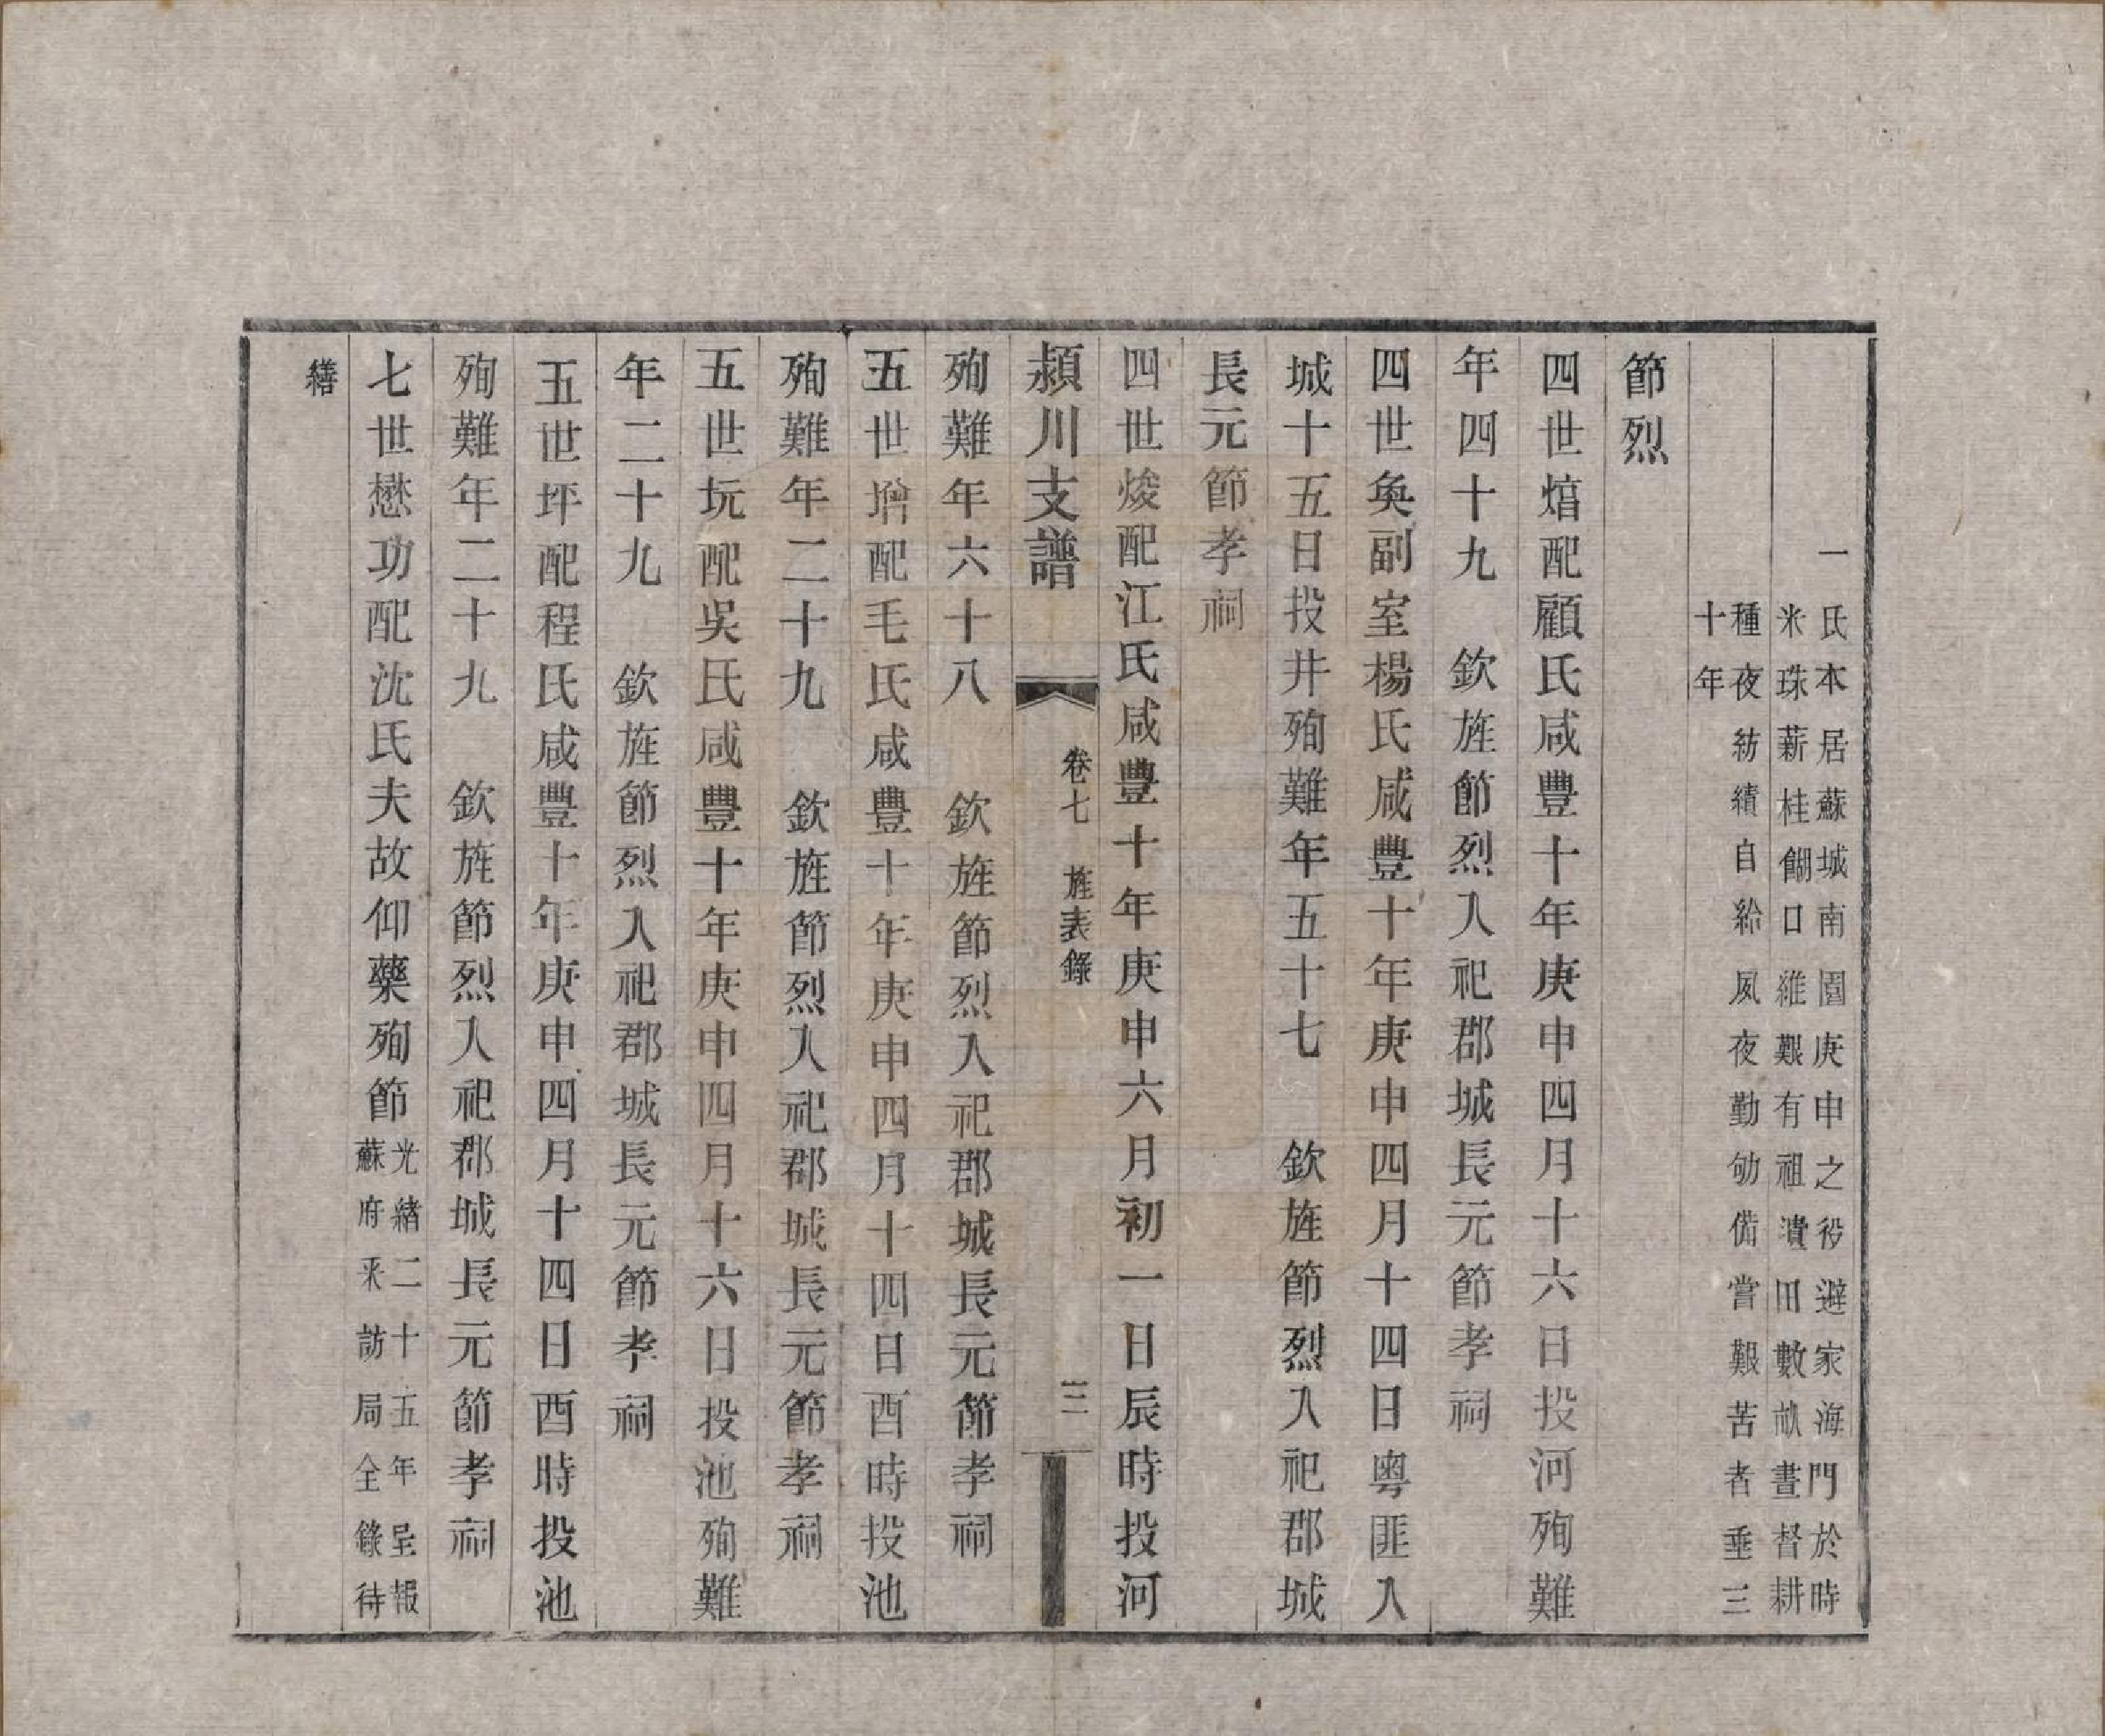 一氏本居蘇城南園庚申之役避家海門於時
米珠薪桂餬口維艱有祖潰田數畝晝督耕
種夜紡績自給夙夜勤劬備嘗艱苦者垂三
十年
節烈
四世焙配顧氏咸豐十年庚申四月十六日投河殉難
年四十九　欽旌節烈入祀郡城長元節孝祠
四世奐副室楊氏咸豐十年庚申四月十四日粵匪入
城十五日投井殉難年五十七　欽旌節烈入祀郡城
長元節孝祠
四世焌配江氏咸豐十年庚申六月初一日辰時投河
潁川支譜　卷七　旌表錄　三
殉難年六十八　欽旌節烈入祀郡城長元節孝祠
五世增配毛氏咸豐十年庚申四月十四日酉時投池
殉難年二十九　欽旌節烈入祀郡城長元節孝祠
五世坃配吳氏咸豐十年庚申四月十六日投池殉難
年二十九　欽旌節烈入祀郡城長元節孝祠
五世坪配程氏咸豐十年庚申四月十四日酉時投池
殉難年二十九　欽旌節烈入祀郡城長元節孝祠
七世懋功配沈氏夫故仰藥殉節光緒二十五年呈報
蘇府采訪局全錄待
繕